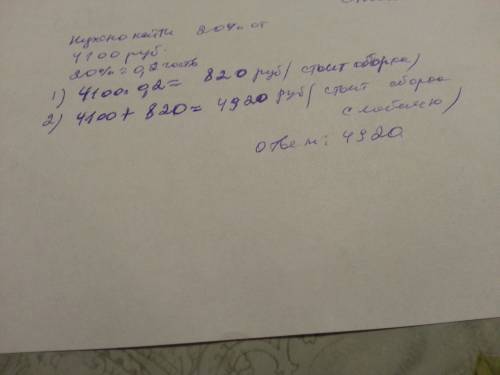 Нужно найти 20% от
4100 руб.
20% = 0,2 часть
1) 4100·0,2= 820 руб( стоит сборка)
2) 4100+ 820= 4920 руб( стоит сборка
с мебелью)
Ответ: 4920